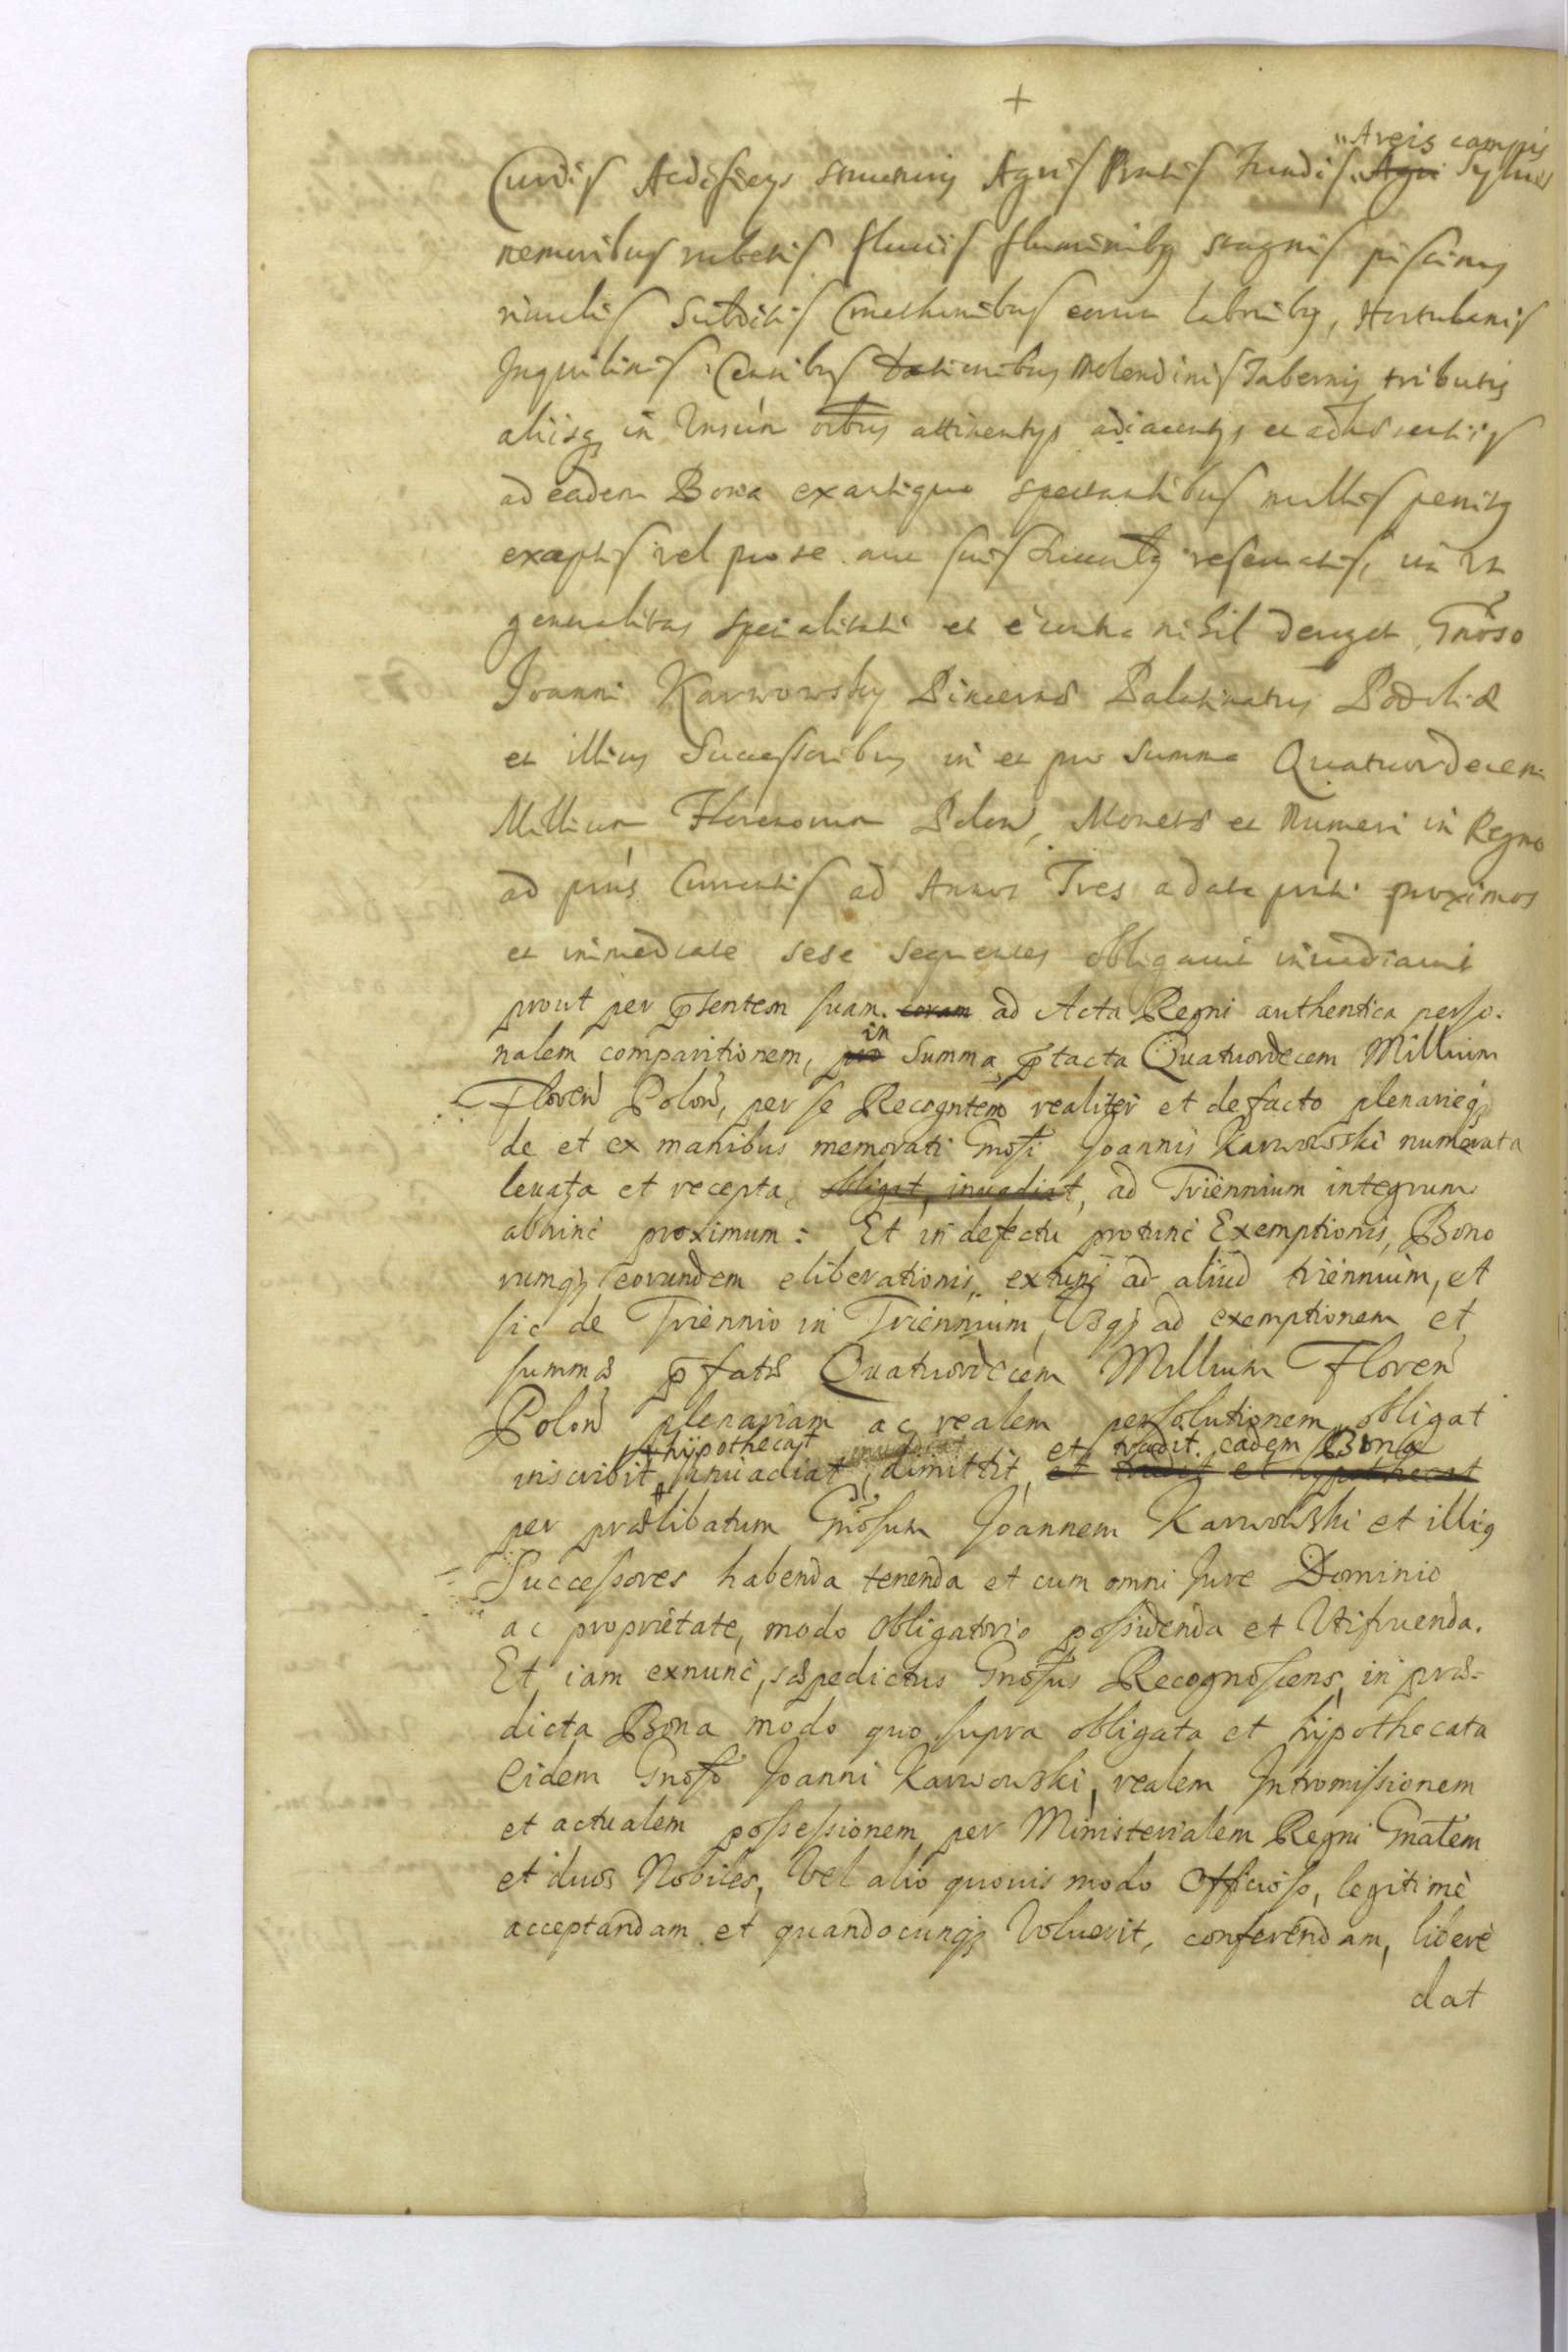 +
"Areis campis
Curiis Aedificijs Agris Pratis Agri Syluis
nemoribus rubetis fluuiis fluminibq stagnis piscinis
riuulis Subditis Cmethonibus eorum laboribq, Hortulanis
Inquilinis Censibus dationibus Molendinis Tabernis tributis
alijsq in Vniuersum oibus attinentijs adiacentijs et
ad eadem Bona exantiquo spectantibus nullis penitq
exceptis vel pro se aut suis reseruatis, ita vt
generalitas specialitati et e contra nihil deroget, Gnoso
Joanni Karwowsky Pincernæ Palatinatus Podlachiæ
et illius Successoribus in et pro summa Quatuordecem
Millium Florenorum Polon, Monetæ et Numeri in Regno
ad pnś Currentis ad Annos Tres a data pnti proximos
et immediate sese sequentes obligauit inuadiauit
prout per pſentem suam. coram ad Acta Regni authentica perso-
in
nalem comparitionem, pro Summa ptacta Quatuordecem Millium
Floren Polon, per se Recogntem realiter et defacto plenarieq
de et ex manibus memorati Gnosi Joannis Karwowski numerata
leuata et recepta, obligat, inuadiat, ad Triennium integrum
abhinc proximum: Et in defectu protunc Exemptionis, Bono
rumq eorundem eliberationis, extunc ad aliud triennium, et
sic de Triennio in Triennium, Vsq ad exemptionem et
summæ pfatæ Quatuordecem Millium Floren
Polon plenariam ac realem persolutionem, obligat
hypothecat inuadiat et tradit eadem Bona
inscribit, inuadiat, dimittit, et tradit et hypothecat
per prælibatum Gnosum Joannem Karwowski et illiq
Successores habenda tenenda et cum omni Jure Dominio
ac proprietate, modo obligatorio possidenda et Vtifruenda.
Et iam exnunc, sæpedictus Gnosus Recognoscens, in præ-
dicta Bona modo quo supra obligata et hypothecata
Eidem Gnoso Joanni Karwowski, realem Intromissionem
et actualem possessionem per Ministerialem Regni Gnalem
et duos Nobiles, Vel alio quouis modo Officioso, legitimè
acceptandam et quandocunq Voluerit, conferendam, liberè
dat